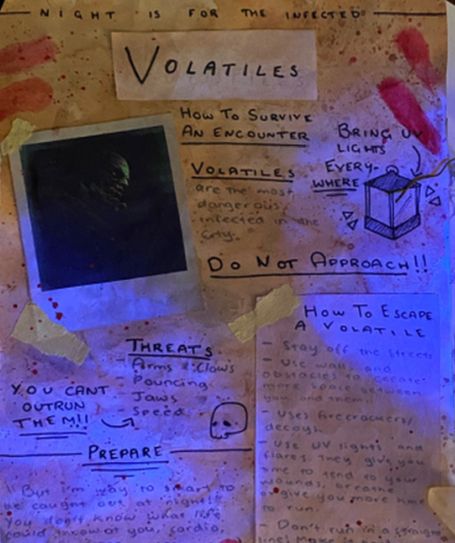 NIGHT IS FOR THE INFECTED
VOLATILES
HOW TO SURVIVE
AN ENCOUNTER
BRING UV
LIGHTS
EVERY-
WHERE
VOLATILES
are the most
dangerous
infected in the
city.
DO NOT APPROACH!!
HOW TO ESCAPE
A VOLATILE
- Stay off the streets
- Use walls and
obstacles to create
more space between
you and them
- Use firecrackers/
decoys
- Use UV lights and
flares, they give you
time to tend to your
wounds, breathe
give you more time
to run.
- Don't run in a straight
THREATS
- Arms + Claws
- Pouncing
- Jaws
- Speed
YOU CANT
OUTRUN
THEM!!
PREPARE
But I'm way to smart to
be caught out at night!!
You don't know what life
could throw at you, cardio,